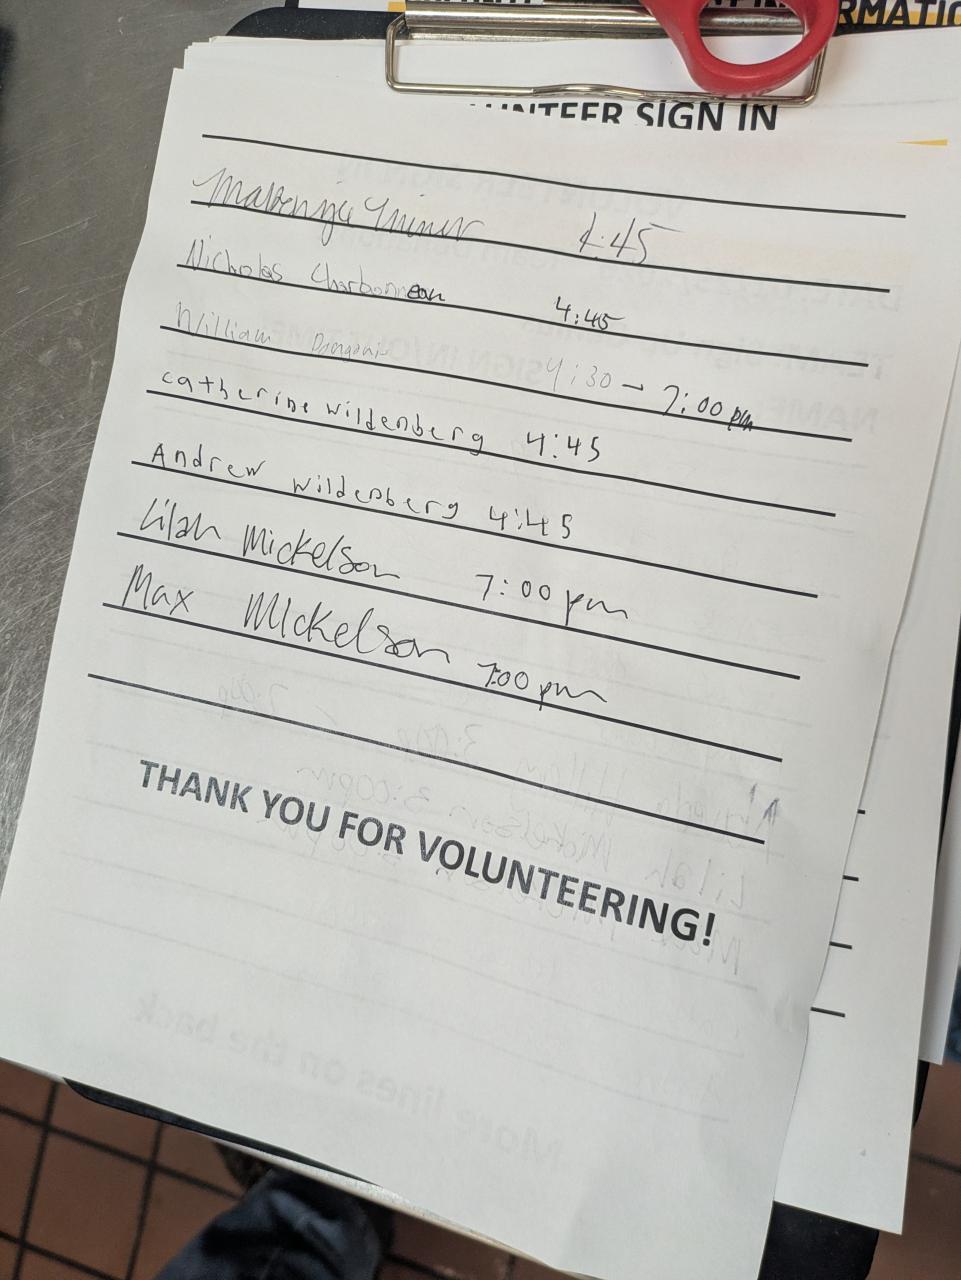 VOLUNTEER SIGN IN
4:45
Nicholas Charbonneau 4:45
William 4:30 - 7:00 pm
catherine wildenberg 4:45
Andrew wildenberg 4:45
Lilah Mickelson 7:00 pm
Max Mickelson 7:00 pm
THANK YOU FOR VOLUNTEERING!